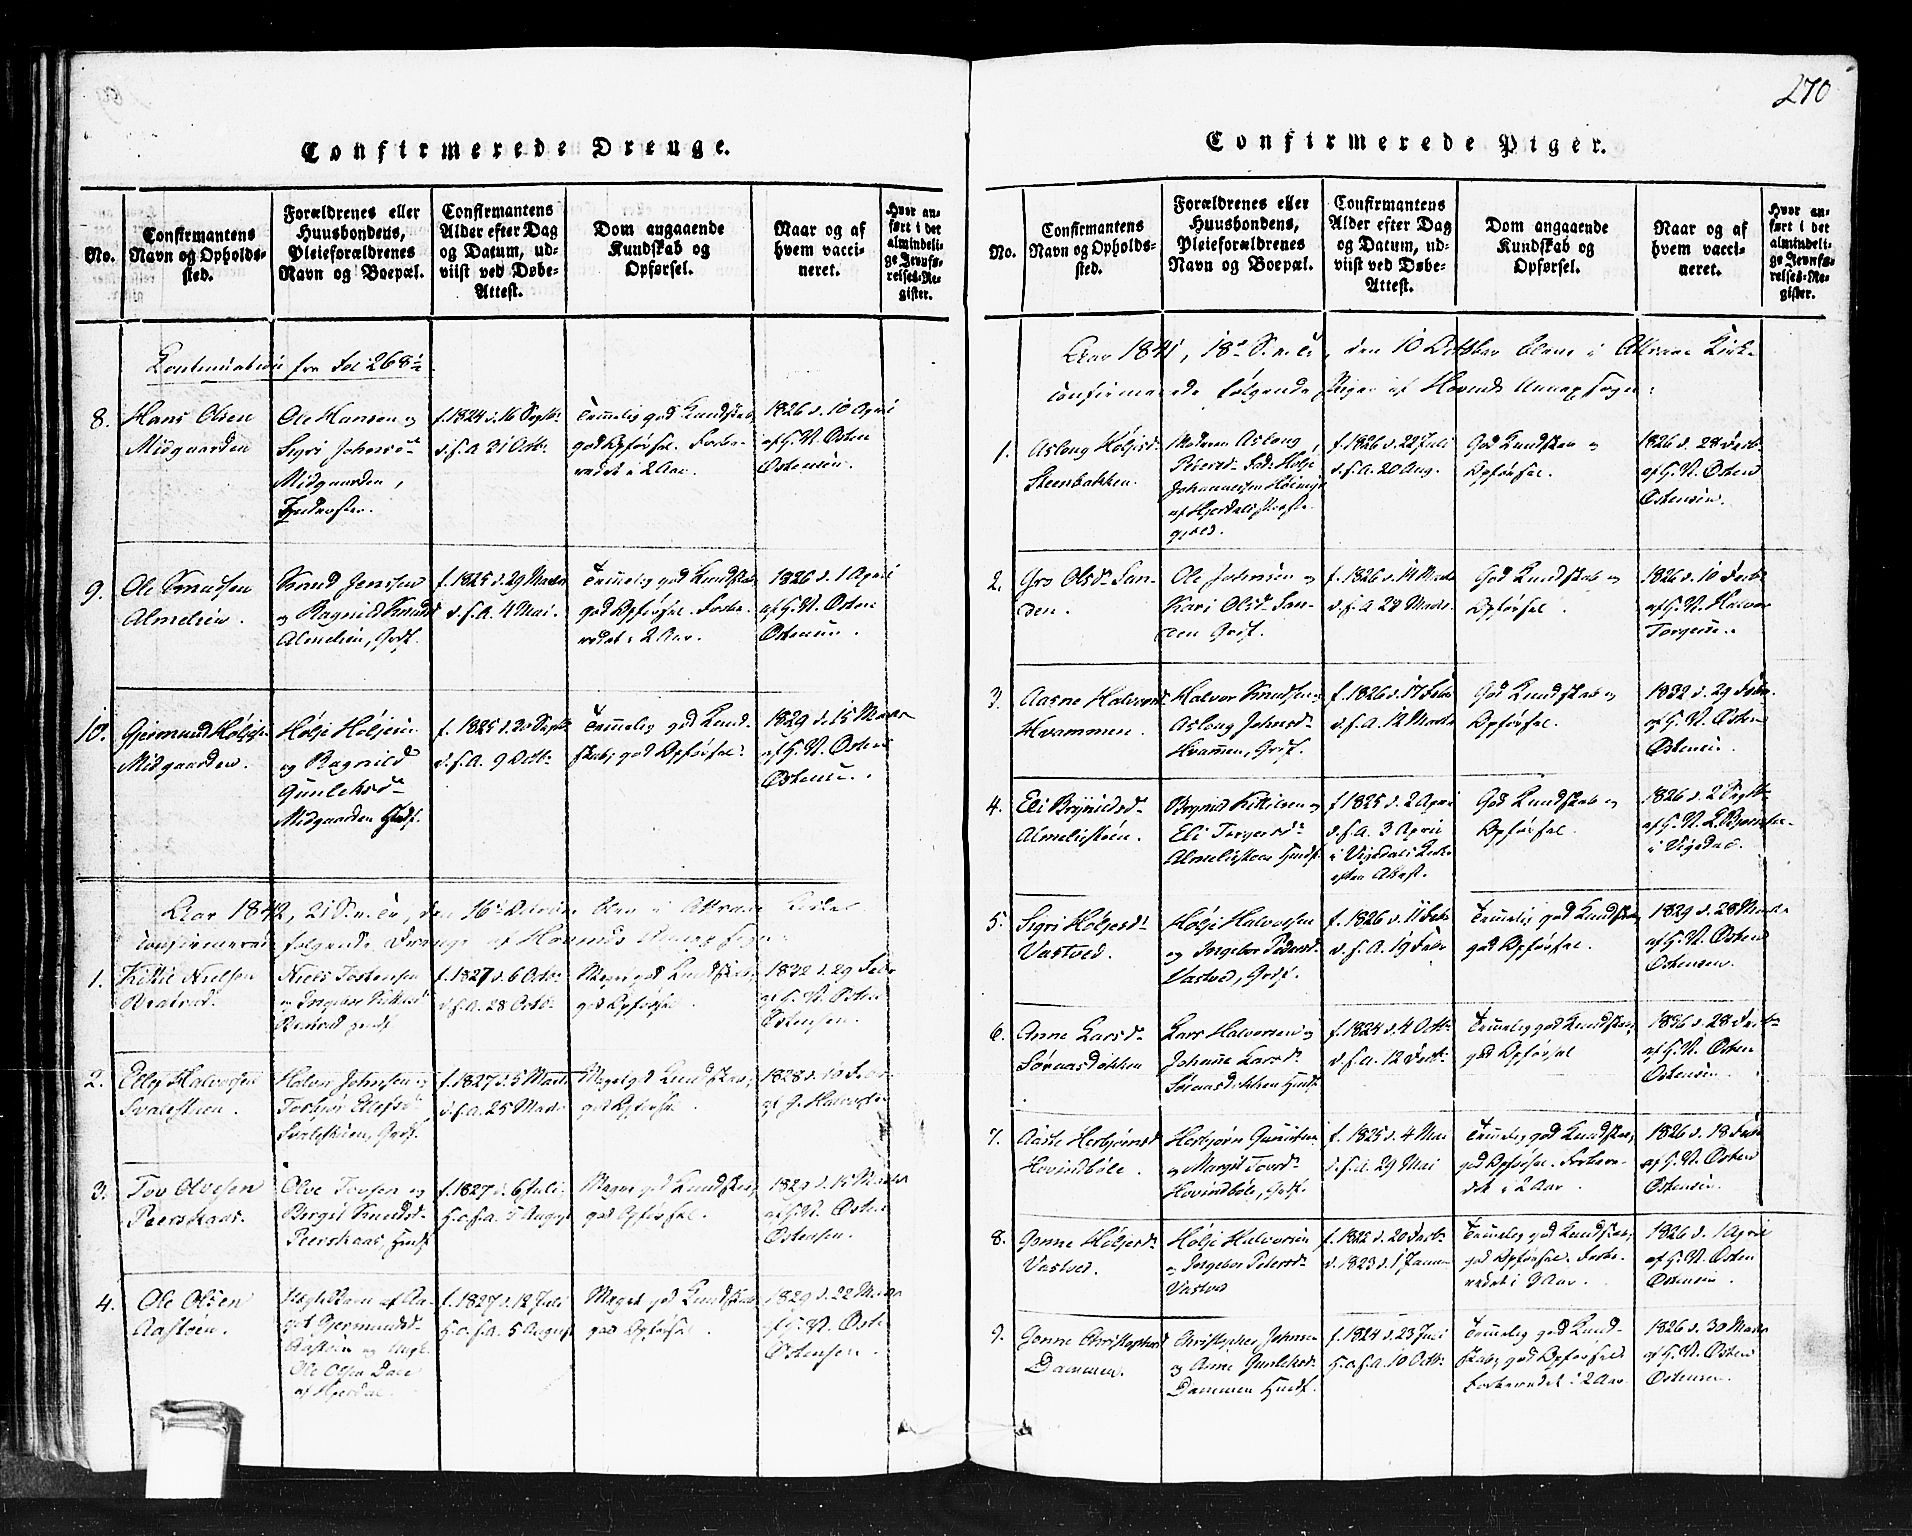 270
Confirmerede Drenge.
No.
Confirmantens
Navn og Opholds-
sted.
Forældrenes eller
Huusbondens,
Pleieforældrenes
Navn og Boepæl.
Confirmantens
Alder efter Dag
og Datum, ud-
viist ved Døbe-
Attest.
Dom angaaende
Kundskab og
Opførsel.
Naar og af
hvem vacci-
neret.
Hvor an-
ført i det
almindeli-
ge Jevnfø-
relses-Re-
gister.
Continuation fra Fol 268
8.
Hans Olsen
Midgaarden
Ole Hansen og
Sigri Johnsd
Midgaarden,
f. 1824 d. 16 Septbr
d.s.A. 31 Octb:
Temmelig god Kundskab,
god Opførsel. Forbe-
redet i 2 Aar.
1826 d. 10 April
af H. N. Østen
Østensen.
9.
Ole Knudsen
Almelien.
Knud Jenssen
og Ragnild Knudsd
Almelien, Grdf.
f. 1825 d. 29 Marts
d.s.A. 4 Mai.
Temmelig god Kundskab
god Opførsel. Forbe-
redet i 2 Aar.
1826 d. 1 April
af H. N. Østen
Østensen.
10.
Gjermund Høljes
Midgaarden.
Hølje Høljesen
og Ragnild
Gunleksd
Midgaarden Husf.
f. 1825 d. 20 Septb
d.s.A. 9 Octb:
Temmelig god Kund-
skab, god Opførsel.
1829 d. 15 Marts
af H. N. Østen
Østensen.
Aar 1842, 21 S. n. Tr., den 16de October blev i Atraae Kirke
confirmerede følgende Drenge af Hovinds Annex Sogn.
1.
Kittil Nielsen
Niels Tostensen
og Ingebor
f. 1827 d. 6 Octb:
d.s.A. 28 Octb:
Meget god Kundskab,
god Opførsel.
1832 d. 29 Febr
af H. N. Østen
Østensen.
2.
Halvorsen
Halvor Johnsen og
Grdf.
f. 1827 d. 5 Marts
d.s.A. 25 Marts
Meget god Kundskab,
god Opførsel
1828 d. 10 Febr
af G. Halvorsen
3.
Tov Olvesen
Peerskaas.
Olve Tovsen og
Bergit Knudsd
Peerskaas Husf
f. 1827 d. 6 Juli
H.o.s.A. 5 August
Meget god Kundskab,
god Opførsel.
1829 d. 15 Marts
af H. N. Østen
Østensen.
4.
Ole Olsen
Aastøen.
Gjermundsd.
Aastøen og
Ole Olsen Dale
af Hjerdal.
f. 1827 d. 12 Juli
H.o.s.A. 5 August
Meget god Kundskab
god Opførsel
1829 d. 22 Marts
af H. N. Østen
Østensen.
Confirmerede Piger.
No.
Confirmantens
Navn og Opholds-
sted.
Forældrenes eller
Huusbondens,
Pleieforældrenes
Navn og Boepæl.
Confirmantens
Alder efter Dag
og Datum, ud-
viist ved Døbe-
Attest.
Dom angaaende
Kundskab og
Opførsel.
Naar og af
hvem vacci-
neret.
Hvor an-
ført i det
almindeli-
ge Jevnfø-
relses-Re-
gister.
Aar 1841, 18de S. n. Tr., den 10 October blev i Atraae Kirke
confirmerede følgende Piger af Hovinds Annex Sogn:
1.
Aslong Høljesd
Steenbakken.
Moderen Aslong
Pedersd. Fad. Hølje
Johannessen
f. 1826 d. 22 Juli
d.s.A. 20 Aug.
God Kundskab og
Opførsel.
1826 d. 28 Octb
af H. N. Østen
Østensen.
2.
Gro Olsd San-
den.
Ole Johnsen og
Kari Olsd San-
den Grdf.
f. 1826 d. 14 Marts
d.s.A. 28 Marts.
God Kundskab og
Opførsel.
1826 d. 10 Octb
af H. N. Halvor
Torgersen.
3.
Aasne Halvorsd
Hvammen.
Halvor Knudsen og
Aslong Johnsd
Hvamen, Grdf.
f. 1826 d. 17 Febr
d.s.A. 12 Marts
God Kundskab og
Opførsel.
1832 d. 29 Febr.
af H. N. Østen
Østensen.
4.
Eli Brynildsd
Brynild Kittilsen og
Eli Torgersd
f. 1825 d. 2 April
d.s.A. 3 April
God Kundskab og
Opførsel.
1826 d. 2 Septb
5.
Sigri Høljesd
Vastved.
Hølje Halvorsen
og Ingebor Pedersd
Vastved, Grdf.
f. 1826 d. 11 Febr
d.s.A. 19 Febr
Temmelig god Kundskab,
god Opførsel.
1829 d. 28 Marts
af H. N. Østen
Østensen.
6.
Anne Larsd
Sønaasdokken
Lars Halvorsen og
Johanne Larsd
Sønaasdokken Husf.
f. 1824 d. 4 Octb
d.s.A. 12 Decb:
Temmelig god Kundskab,
god Opførsel
1836 d. 28 Octb
af H. N. Østen
Østensen.
7.
Aaste Herbjørnsd
Hovindbøle.
Herbjørn
og Margit Tovsd
Hovindbøle, Grdf.
f. 1825 d. 4 Mai
d.s.A. 29 Mai
Temmelig god Kundskab,
god Opførsel. Forbere-
det i 2 Aar.
1826 d. 18 Febr
af H. N. Østen
Østensen.
8.
Gonne Høljesd
Vastved.
Hølje Halvorsen
og Ingebor Pedersd
Vastved
f. 1822 d. 20 Decb
d. 1823 d. 1 Januar
Temmelig god Kundskab,
god Opførsel. Forbe-
redet i 3 Aar.
1826 d. 1 April
af H. N. Østen
Østensen.
9.
Gonne Christophersd
Dammen.
Christopher Johnsen
og Anne Gunleksd
Dammen Husf.
f. 1824 d. 23 Juni
H.o.s.A. 10 Octb:
Temmelig god Kund-
skab, god Opførsel
Forberedet i 2 Aar.
1826 d. 30 Marts
af H. N. Østen
Østensen.